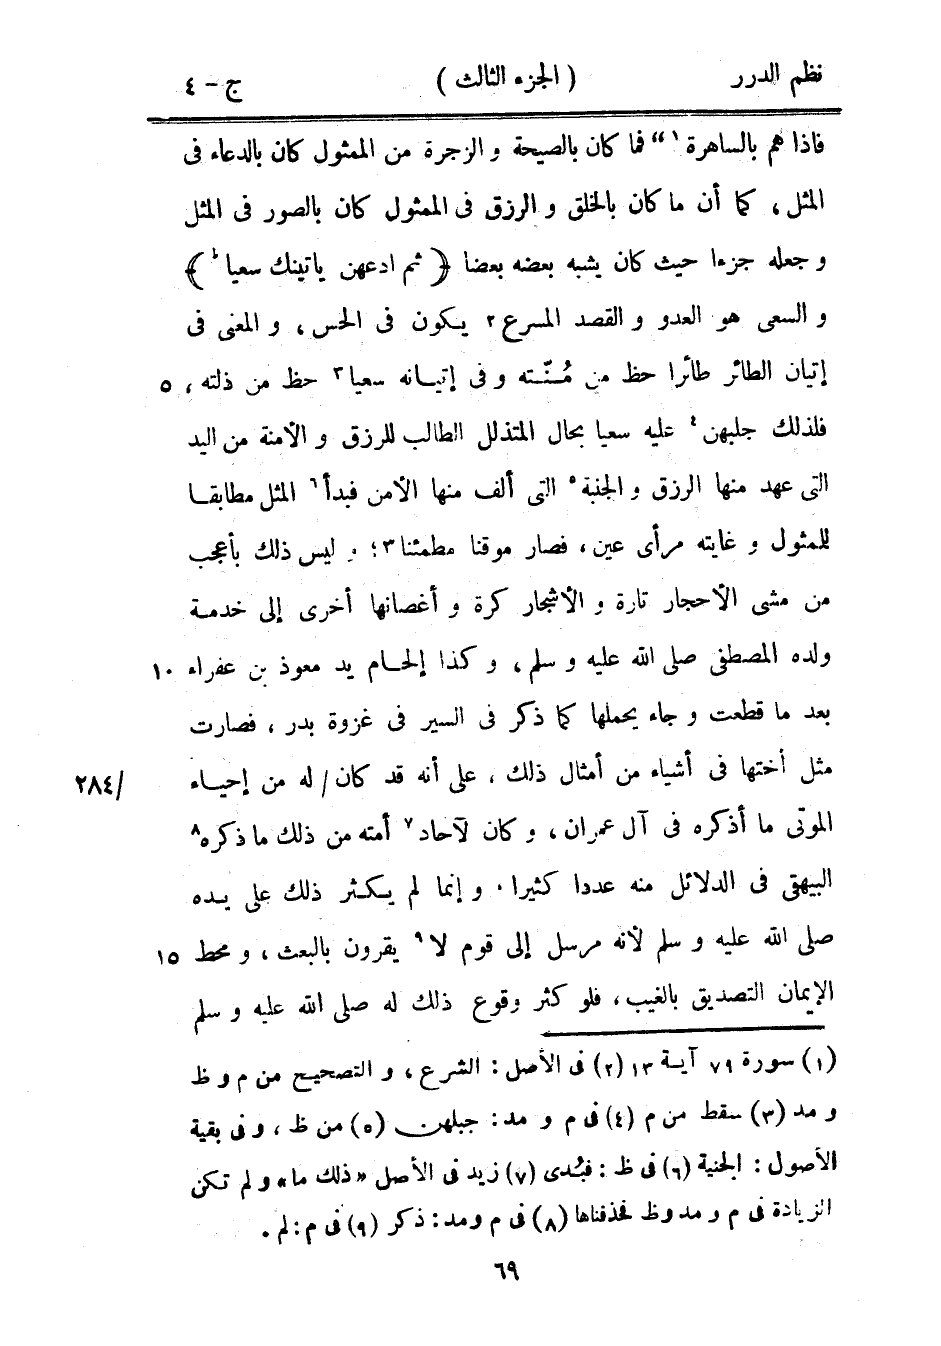 نظم الدرر ( الجزء الثالث ) ج - ٤
فاذا هم بالساهرة ١ " فما كان بالصيحة و الزجرة من الممثول كان بالدعاء فى
المثل ، كما أن ما كان بالخلق و الرزق فى الممثول كان بالصور فى المثل
و جعله جزءا حيث كان يشبه بعضه بعضا ﴿ ثم ادعهن ياتينك سعيا ط ﴾
و السعى هو العدو و القصد المسرع ٢ يكون فى الحس ، و المعنى فى
إتيان الطائر طائرا حظ من مُنّته و فى إتيانه سعيا ٣ حظ من ذلته ، ٥
فلذلك جلبهن ٤ عليه سعيا بحال المتذلل الطالب للرزق و الأمنة من اليد
التى عهد منها الرزق و الجنبة ٥ التى ألف منها الأمن فبدأ ٦ المثل مطابقا
للمثول و غايته مرأى عين ، فصار موقنا مطمئنا ٣ ؛ و ليس ذلك بأعجب
من مشى الأحجار تارة و الأشجار كرة و أغصانها أخرى إلى خدمة
ولده المصطفى صلى الله عليه و سلم ، و كذا إلحام يد معوذ بن عفراء ١٠
بعد ما قطعت و جاء يحملها كما ذكر فى السير فى غزوة بدر ، فصارت
مثل أختها فى أشياء من أمثال ذلك ، على أنه قد كان / له من إحياء /٢٨٤
الموتى ما أذكره فى آل عمران ، و كان لآحاد ٧ أمته من ذلك ما ذكره ٨
البيهقى فى الدلائل منه عددا كثيرا . و إنما لم يكثر ذلك على يده
صلى الله عليه و سلم لأنه مرسل إلى قوم لا ٩ يقرون بالبعث ، و محط ١٥
الإيمان التصديق بالغيب ، فلو كثر وقوع ذلك له صلى الله عليه و سلم
(١) سورة ٧٩ آية ١٣ (٢) فى الأصل : الشرع ، و التصحيح من م و ظ
و مد (٣) سقط من م (٤) فى م و مد : جبلهن (٥) من ظ ، و فى بقية
الأصول : الجنية (٦) فى ظ : فبُدى (٧) زيد فى الأصل « ذلك ما » و لم تكن
الزيادة فى م و مد و ظ فحذفناها (٨) فى م و مد : ذكر (٩) فى م : لم .
٦٩